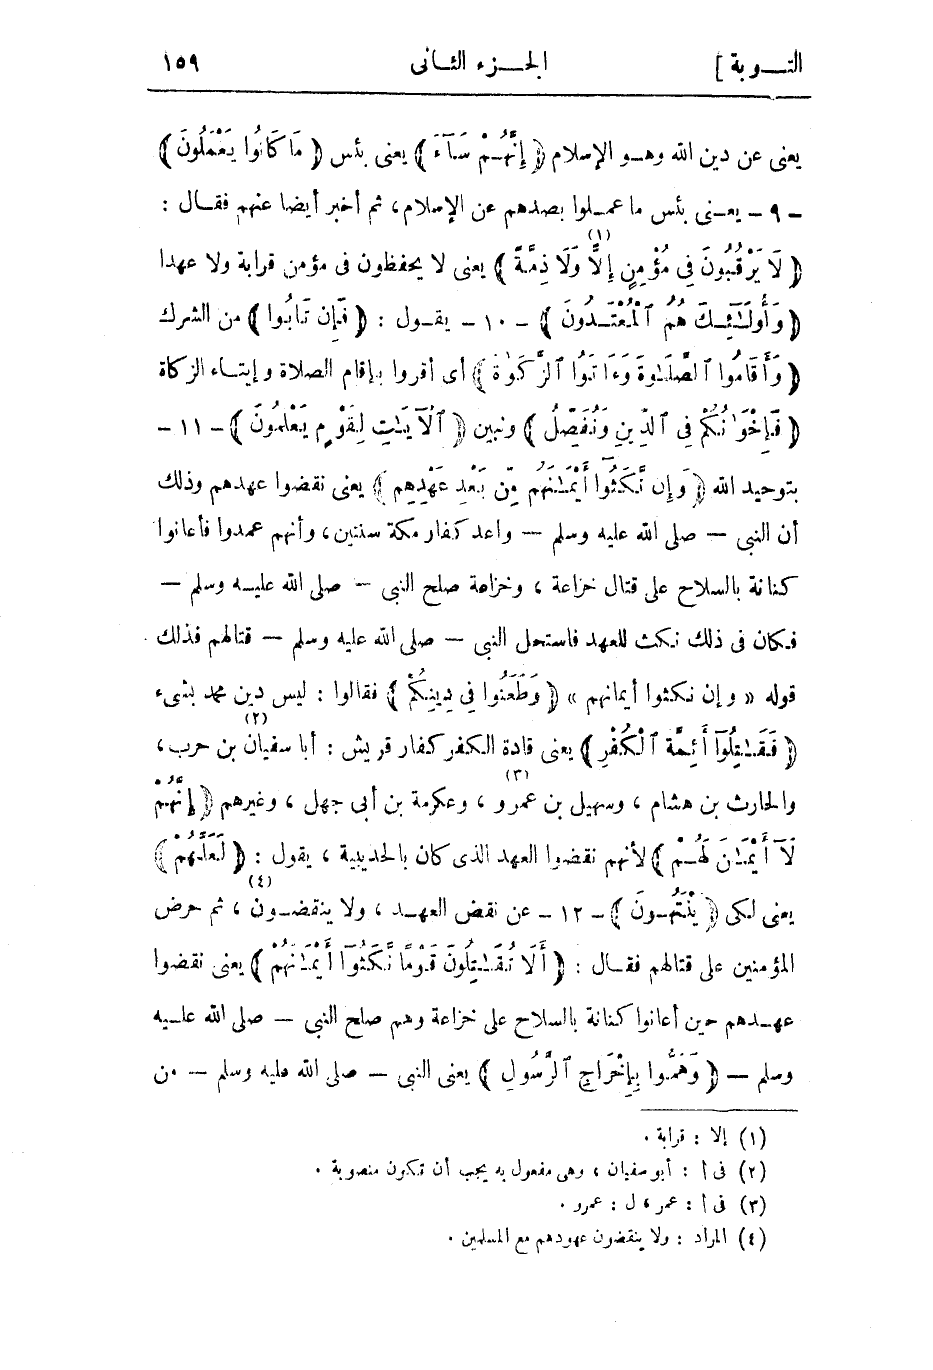 التـــوبة ]
الجـــزء الثـانى
١٥٩
يعنى عن دين الله وهـو الإسلام ﴿ إِنَّهُـمْ سَآءَ ﴾ يعنى بئس ﴿ مَا كَانُوا يَعْمَلُونَ ﴾
- ٩ - يعـنى بئس ما عمـلوا بصدهم عن الإسلام، ثم أخبر أيضا عنهم فقـال :
﴿ لَا يَرْقُبُونَ فِي مُؤْمِنٍ إِلًّا (١) وَلَا ذِمَّةً ﴾ يعنى لا يحفظون فى مؤمن قرابة ولا عهدا
﴿ وَأُولَـٰٓئِـكَ هُمُ ٱلْمُعْتَـدُونَ ﴾ - ١٠ - يقـول : ﴿ فَإِن تَابُوا ﴾ من الشرك
﴿ وَأَقَامُوا ٱلصَّلَـٰوةَ وَءَاتَوُا ٱلزَّكَوٰةَ ﴾ أى أقروا بإقام الصلاة وإيتـاء الزكاة
﴿ فَإِخْوَٰنُكُمْ فِي ٱلدِّينِ وَنُفَصِّلُ ﴾ ونبين ﴿ ٱلْآيَـٰتِ لِقَوْمٍ يَعْلَمُونَ ﴾ - ١١ -
بتوحيد الله ﴿ وَإِن نَّكَثُوٓا أَيْمَـٰنَهُم مِّن بَعْدِ عَهْدِهِم ﴾ يعنى نقضوا عهدهم وذلك
أن النبى — صلى الله عليه وسلم — واعد كفار مكة سنتين، وأنهم عمدوا فأعانوا
كنانة بالسلاح على قتال خزاعة ، وخزاعة صلح النبى — صلى الله عليـه وسلم —
فكان فى ذلك نكث للعهد فاستحل النبى — صلى الله عليه وسلم — قتالهم فذلك
قوله « وإن نكثوا أيمانهم » ﴿ وَطَعَنُوا فِي دِينِكُمْ ﴾ فقالوا : ليس دين محمد بشىء
﴿ فَقَـٰتِلُوٓا أَئِمَّةَ ٱلْكُفْرِ ﴾ يعنى قادة الكفر كفار قريش : أبا سفيان (٢) بن حرب،
والحارث بن هشام ، وسهيل بن عمرو (٣) ، وعكرمة بن أبى جهل ، وغيرهم ﴿ إِنَّهُمْ
لَآ أَيْمَـٰنَ لَهُـمْ ﴾ لأنهم نقضوا العهد الذى كان بالحديبية ، يقول : ﴿ لَعَلَّهُمْ ﴾
يعنى لكى ﴿ يَنْتَهُـونَ ﴾ - ١٢ - عن نقض العهـد ، ولا ينقضـون (٤) ، ثم حرض
المؤمنين على قتالهم فقـال : ﴿ أَلَا تُقَـٰتِلُونَ قَوْمًا نَّكَثُوٓا أَيْمَـٰنَهُمْ ﴾ يعنى نقضوا
عهـدهم حين أعانوا كنانة بالسلاح على خزاعة وهم صلح النبى — صلى الله عليـه
وسلم — ﴿ وَهَمُّوا بِإِخْرَاجِ ٱلرَّسُولِ ﴾ يعنى النبى — صلى الله عليه وسلم — من
(١) إلا : قرابة .
(٢) فى أ : أبو سفيان ، وهى مفعول به يجب أن تكون منصوبة .
(٣) فى أ : عمر ، ل : عمرو .
(٤) المراد : ولا ينقضون عهودهم مع المسلمين .